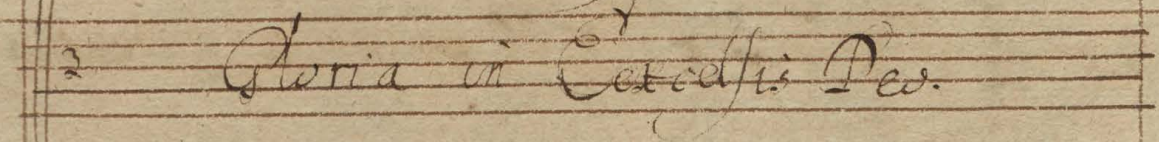 2 Gloria in Eexcelsis Deo.